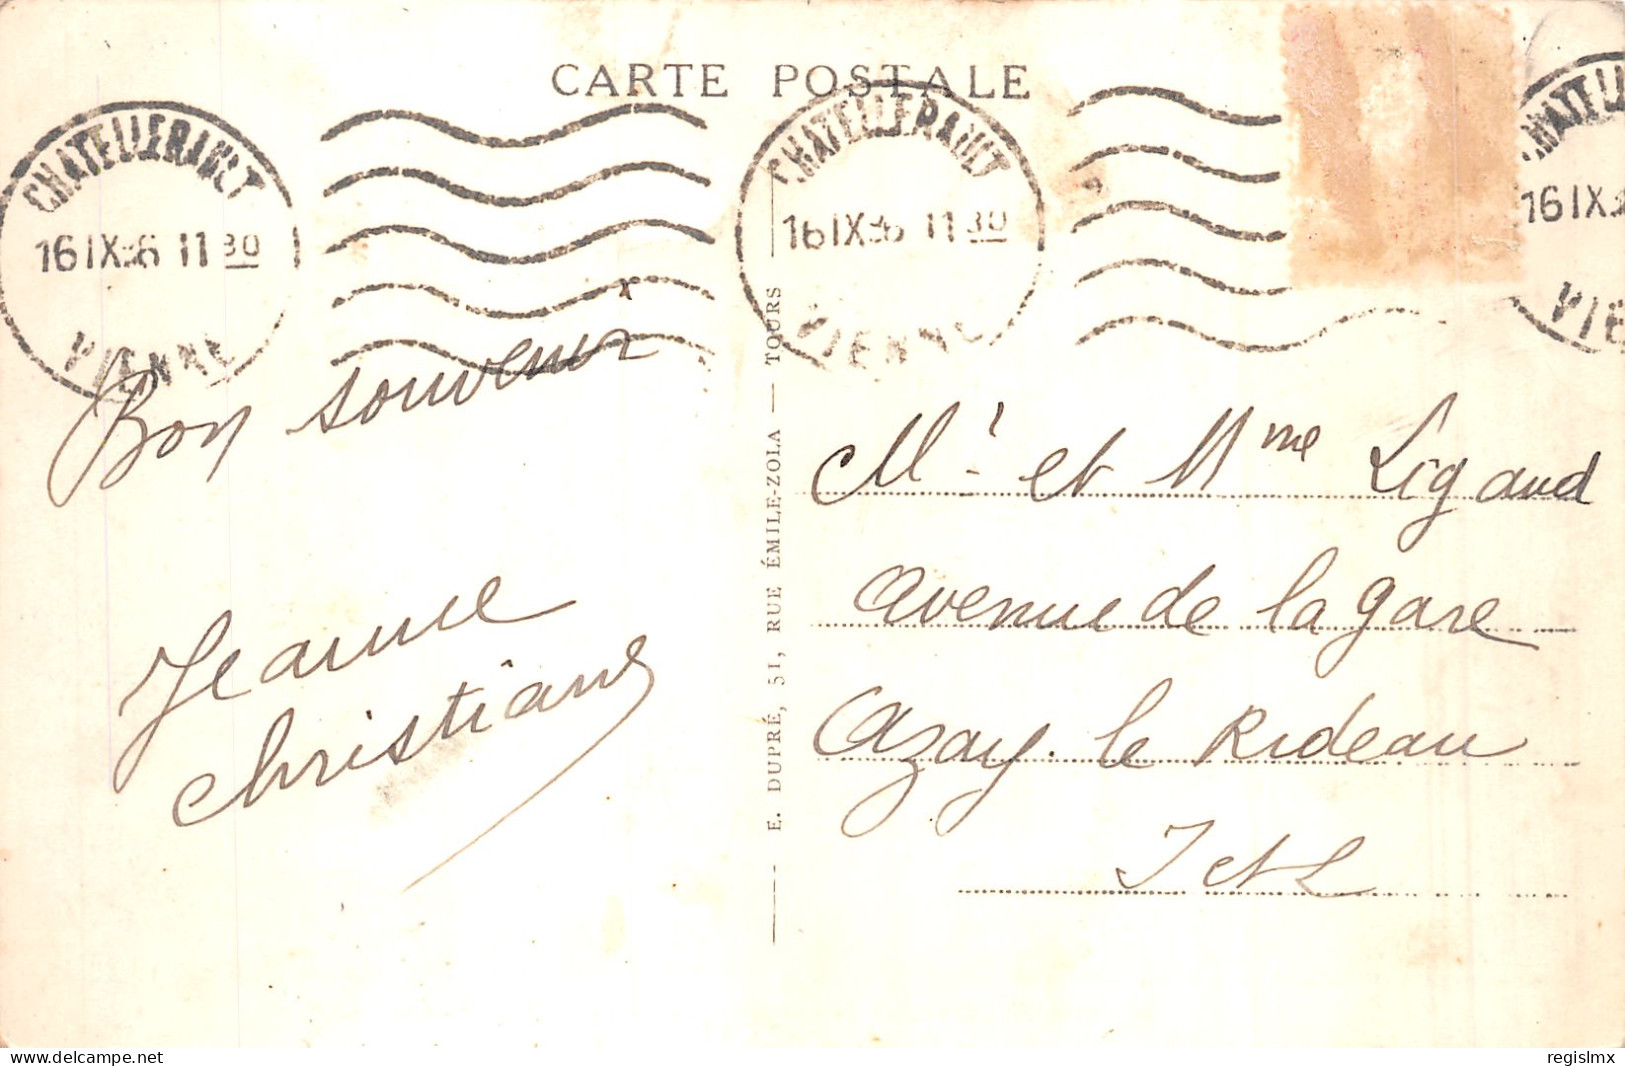 CARTE POSTALE
CHATELLERAULT
16 IX 36 11 30
VIENNE
CHATELLERAULT
16 IX 36 11 30
VIENNE
16 IX
VIE
Bon souvenir
Jeanne
Christiane
E. DUPRÉ, 51, RUE ÉMILE-ZOLA — TOURS
Mr et Mme Ligaud
avenue de la gare
Azay le Rideau
I et L
delcampe.net
regislmx